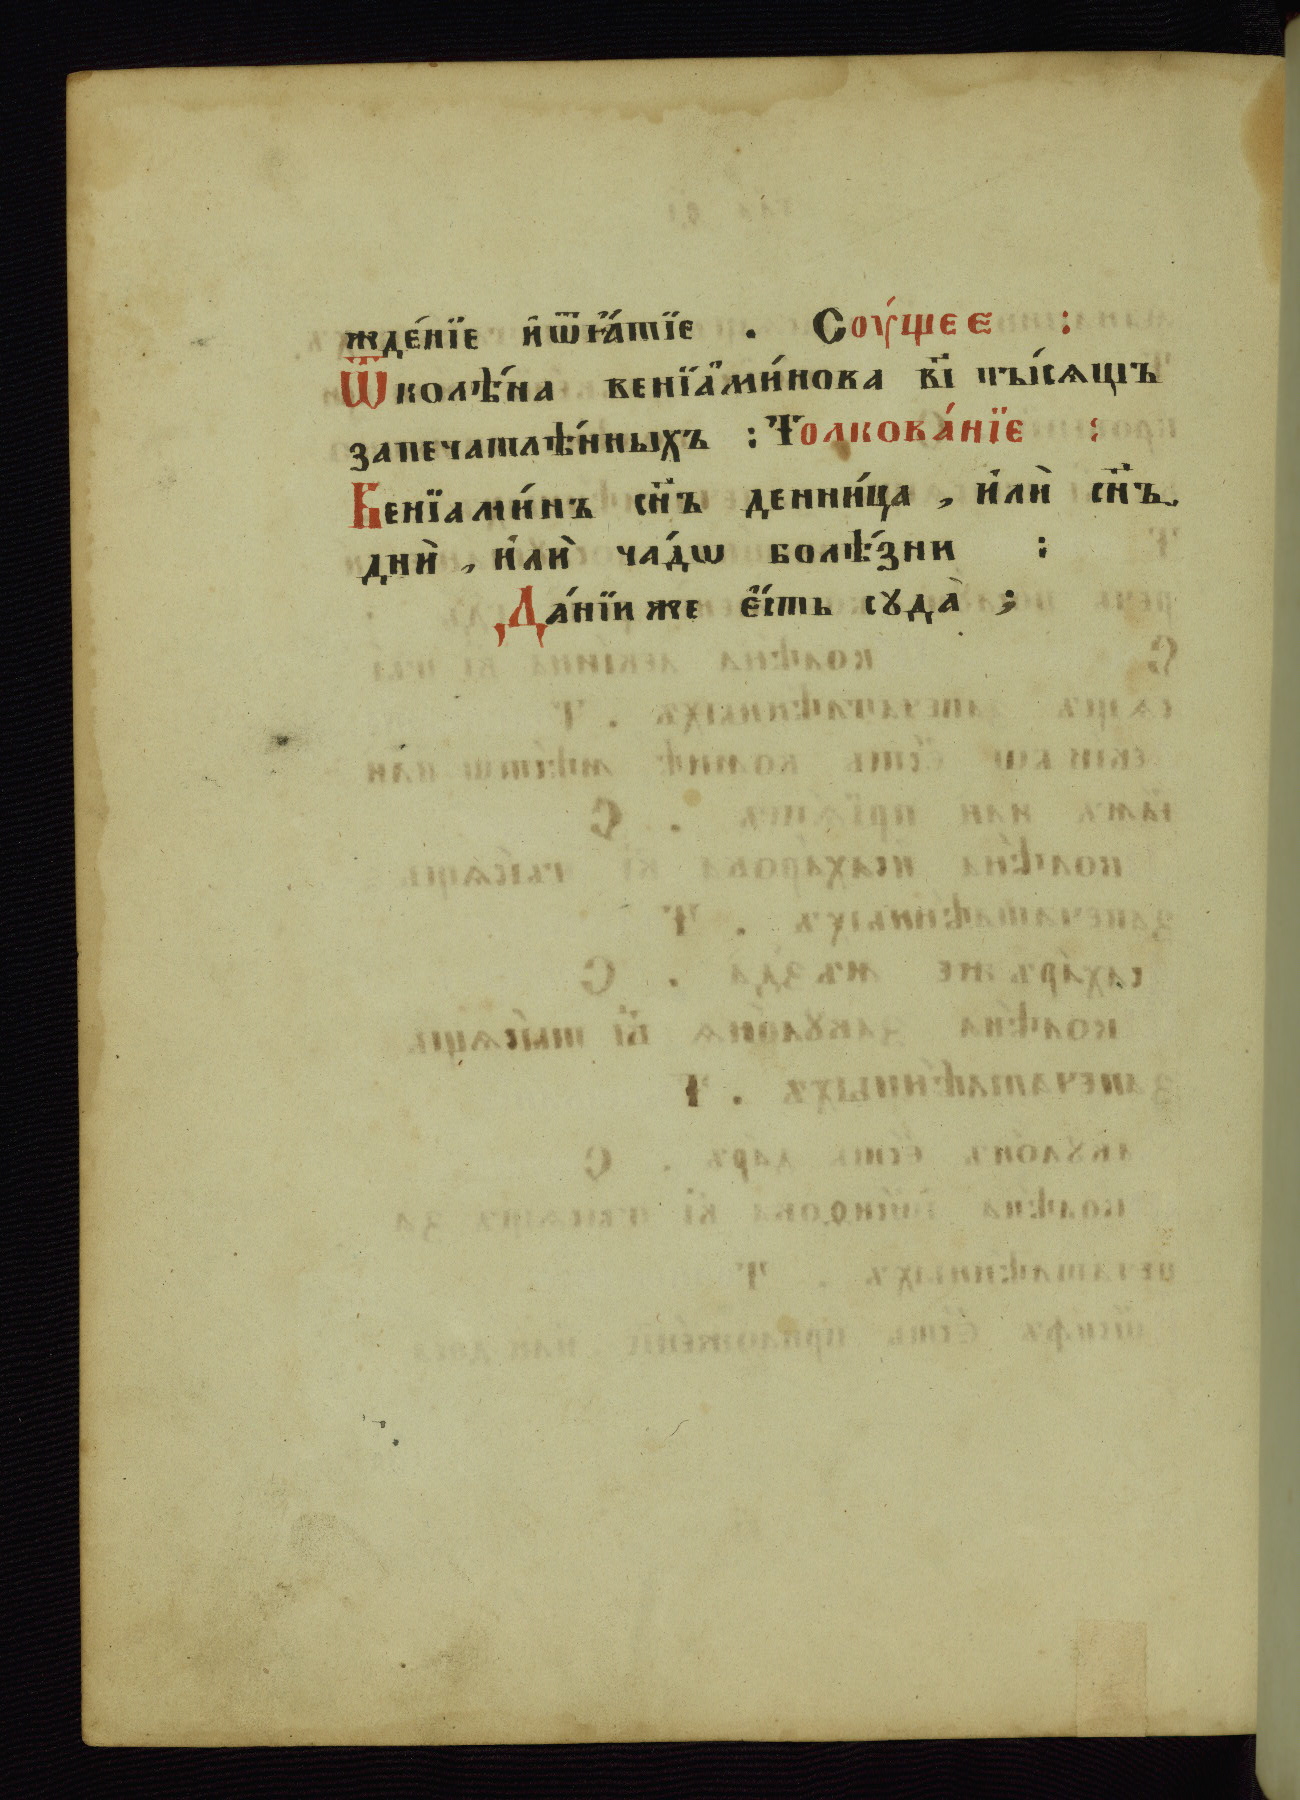 жде́нїе и҆ѿꙗ҆́тїе . Соу́щее :
Ѿколѣ́на венїами́нова в҃і ты́сѧщъ
запечатлѣ́нныхъ : Толкова́нїе :
Венїами́нъ сн҃ъ денни́ца , и҆лѝ сн҃ъ
днѝ , и҆лѝ ча́дѡ болѣ́зни :
Да́нїи же є҆́сть суда̀ ;